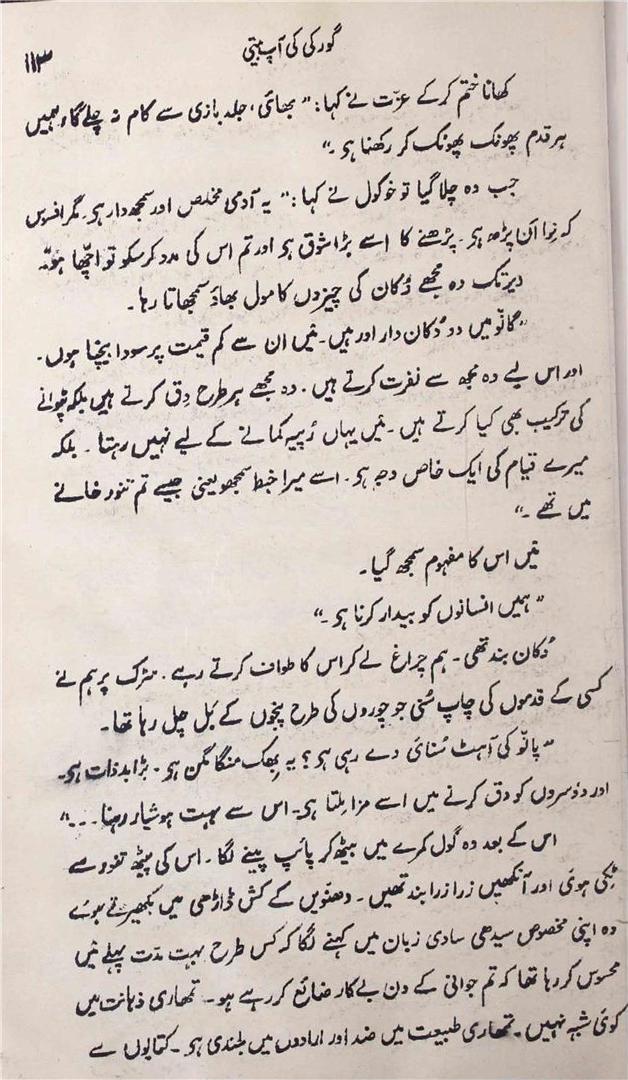 ۱۱۳
گورکی کی آپ بیتی
کھانا ختم کرکے عزت نے کہا: "بھائی، جلد بازی سے کام نہ چلے گا، ہمیں
ہر قدم پھونک پھونک کر رکھنا ہو۔"
جب وہ چلا گیا تو خوگول نے کہا: "یہ آدمی مخلص اور سمجھ دار ہو۔ مگر افسوس
کہ نِوا اَن پڑھ ہو۔ پڑھنے کا اسے بڑا شوق ہو اور تم اس کی مدد کرسکو تو اچھا ہو۔"
دیر تک وہ مجھے دُکان کی چیزوں کا مول بھاؤ سمجھاتا رہا۔
"گانْو میں دو دُکان دار اور ہیں۔ مَیں ان سے کم قیمت پر سودا بیچتا ہوں۔
اور اس لیے وہ مجھ سے نفرت کرتے ہیں۔ وہ مجھے ہر طرح دِق کرتے ہیں بلکہ پٹوانے
کی ترکیب بھی کیا کرتے ہیں۔ مَیں یہاں رُپیہ کمانے کے لیے نہیں رہتا۔ بلکہ
میرے قیام کی ایک خاص وجہ ہو۔ اسے میرا خبط سمجھو یعنی جیسے تم تنور خانے
میں تھے۔"
مَیں اس کا مفہوم سمجھ گیا۔
"ہمیں انسانوں کو بیدار کرنا ہو۔"
دُکان بند تھی۔ ہم چراغ لے کر اس کا طواف کرتے رہے۔ سڑک پر ہم نے
کسی کے قدموں کی چاپ سُنی جو چوروں کی طرح پنجوں کے بَل چل رہا تھا۔
"پانْو کی آہٹ سُنائی دے رہی ہو؟ یہ بِھک منگا مگن ہو۔ بڑا بد ذات ہو۔
اور دوٗسروں کو دق کرنے میں اسے مزا مِلتا ہو۔ اس سے بہت ہوشیار رہنا۔۔۔"
اس کے بعد وہ گول کمرے میں بیٹھ کر پائپ پینے لگا۔ اس کی پیٹھ تنور سے
ٹِکی ہوئی اور آنکھیں زرا زرا بند تھیں۔ دھنْویں کے کش ڈاڑھی میں بکھیرتے ہوئے
وہ اپنی مخصوص سیدھی سادی زبان میں کہنے لگا کہ کس طرح بہت مدّت پہلے مَیں
محسوس کر رہا تھا کہ تم جوانی کے دن بے کار ضائع کر رہے ہو۔ تمھاری ذہانت میں
کوئی شبہ نہیں۔ تمھاری طبیعت میں ضد اور ارادوں میں بلندی ہو۔ کتابوں سے